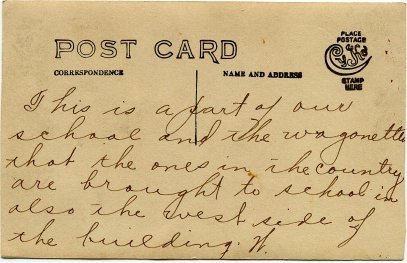 POST CARD
CORRESPONDENCE
NAME AND ADDRESS
PLACE
POSTAGE
STAMP
HERE
This is a part of our
school and the wagonettes
that the ones in the country
are brought to school in
also the west side of
the building. W.